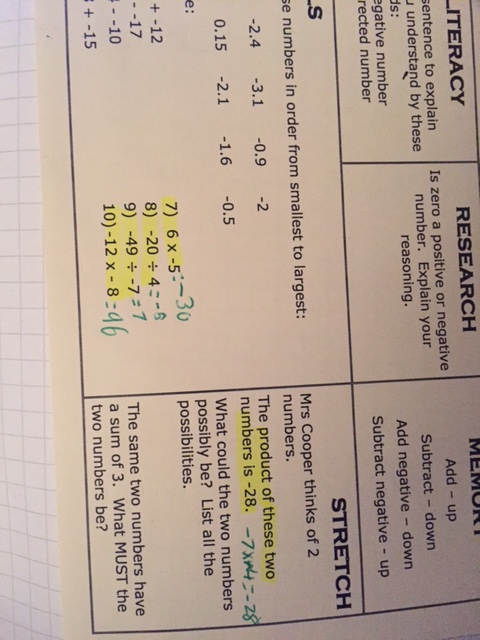 LITERACY
sentence to explain
understand by these
ds:
egative number
rected number
RESEARCH
Is zero a positive or negative
number. Explain your
reasoning.
MEMORY
Add – up
Subtract – down
Add negative – down
Subtract negative - up
LS
se numbers in order from smallest to largest:
-2.4 -3.1 -0.9 -2
0.15 -2.1 -1.6 -0.5
e:
+ -12
- -17
- -10
+ -15
7) 6 x -5 = -30
8) -20 ÷ 4 = -5
9) -49 ÷ -7 = 7
10) -12 x - 8 = 96
STRETCH
Mrs Cooper thinks of 2
numbers.
The product of these two
numbers is -28. -7x4=-28
What could the two numbers
possibly be? List all the
possibilities.
The same two numbers have
a sum of 3. What MUST the
two numbers be?